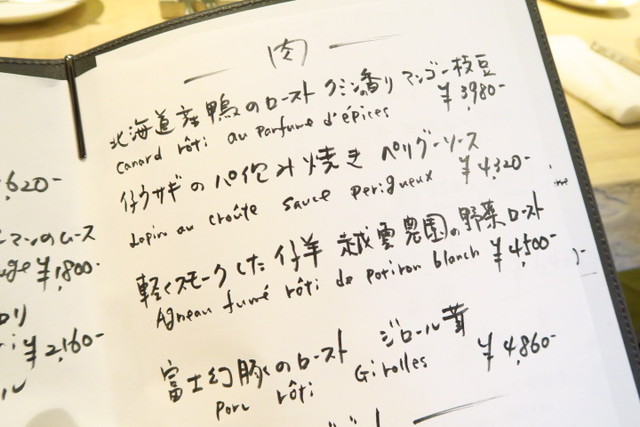 肉
北海道産鴨のロースト クミン香り マンゴー枝豆
canard rôti au parfume d'épices ¥3,980-
仔ウサギのパイ包み焼き ペリグーソース
Lapin au croûte sauce perigueux ¥4,320-
軽くスモークした仔羊 越雲農園の野菜ロースト
Agneau fumé rôti de potiron blanch ¥4,500-
富士幻豚のロースト ジロール茸
porc rôti Girolles ¥4,860-
,620-
マンのムース
uge ¥1,800-
ロリ
¥2,160-
ル